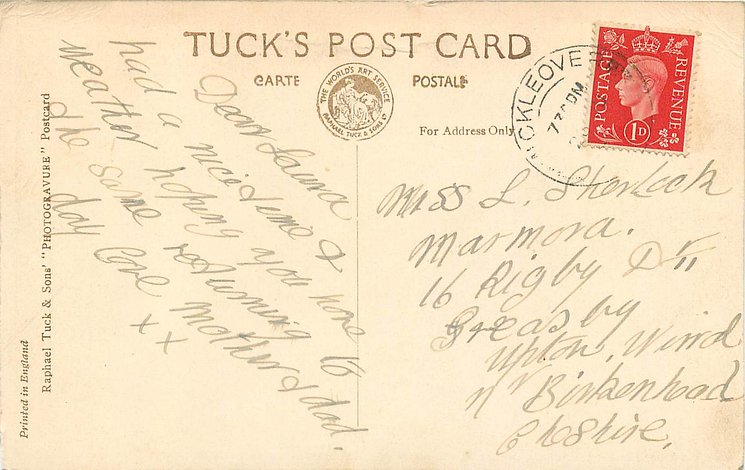 TUCK'S POST CARD
CARTE POSTALE
THE WORLD'S ART SERVICE
RAPHAEL TUCK & SONS LD
For Address Only
Printed in England
Raphael Tuck & Sons' "PHOTOGRAVURE" Postcard
Dear Laura
had a nice time &
weather hoping you have
the same returning to
day love Mother & dad.
X X
MICKLEOVER
7 30 PM
POSTAGE
REVENUE
1D
Miss L. Sherlock
Marmora.
16 Rigby Dr
Greasby
Upton, Wirral
nr Birkenhead
Cheshire.